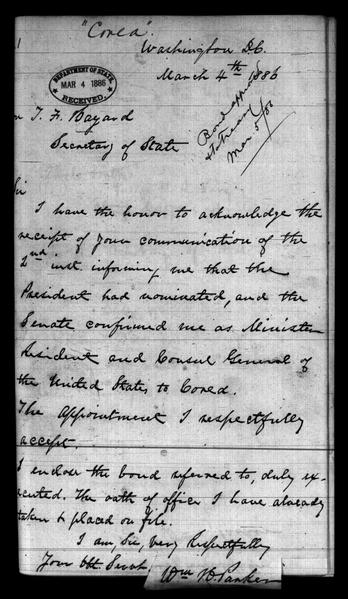 "Corea".
Washington D.C.
March 4th 1886
DEPARTMENT OF STATE,
MAR 4 1886
RECEIVED.
Bond app
Mar 5/86
T. F. Bayard
Secretary of State
Sir
I have the honor to acknowledge the
receipt of your communication of the
2nd inst. informing me that the
President had nominated, and the
Senate confirmed me as Minister
Resident and Consul General of
the United States to Corea.
The appointment I respectfully
accept.
I enclose the bond referred to, duly ex-
ecuted. The oath of office I have already
taken & placed on file.
I am, Sir, very Respectfully
Your Obt. Servt.
Wm H. Parker